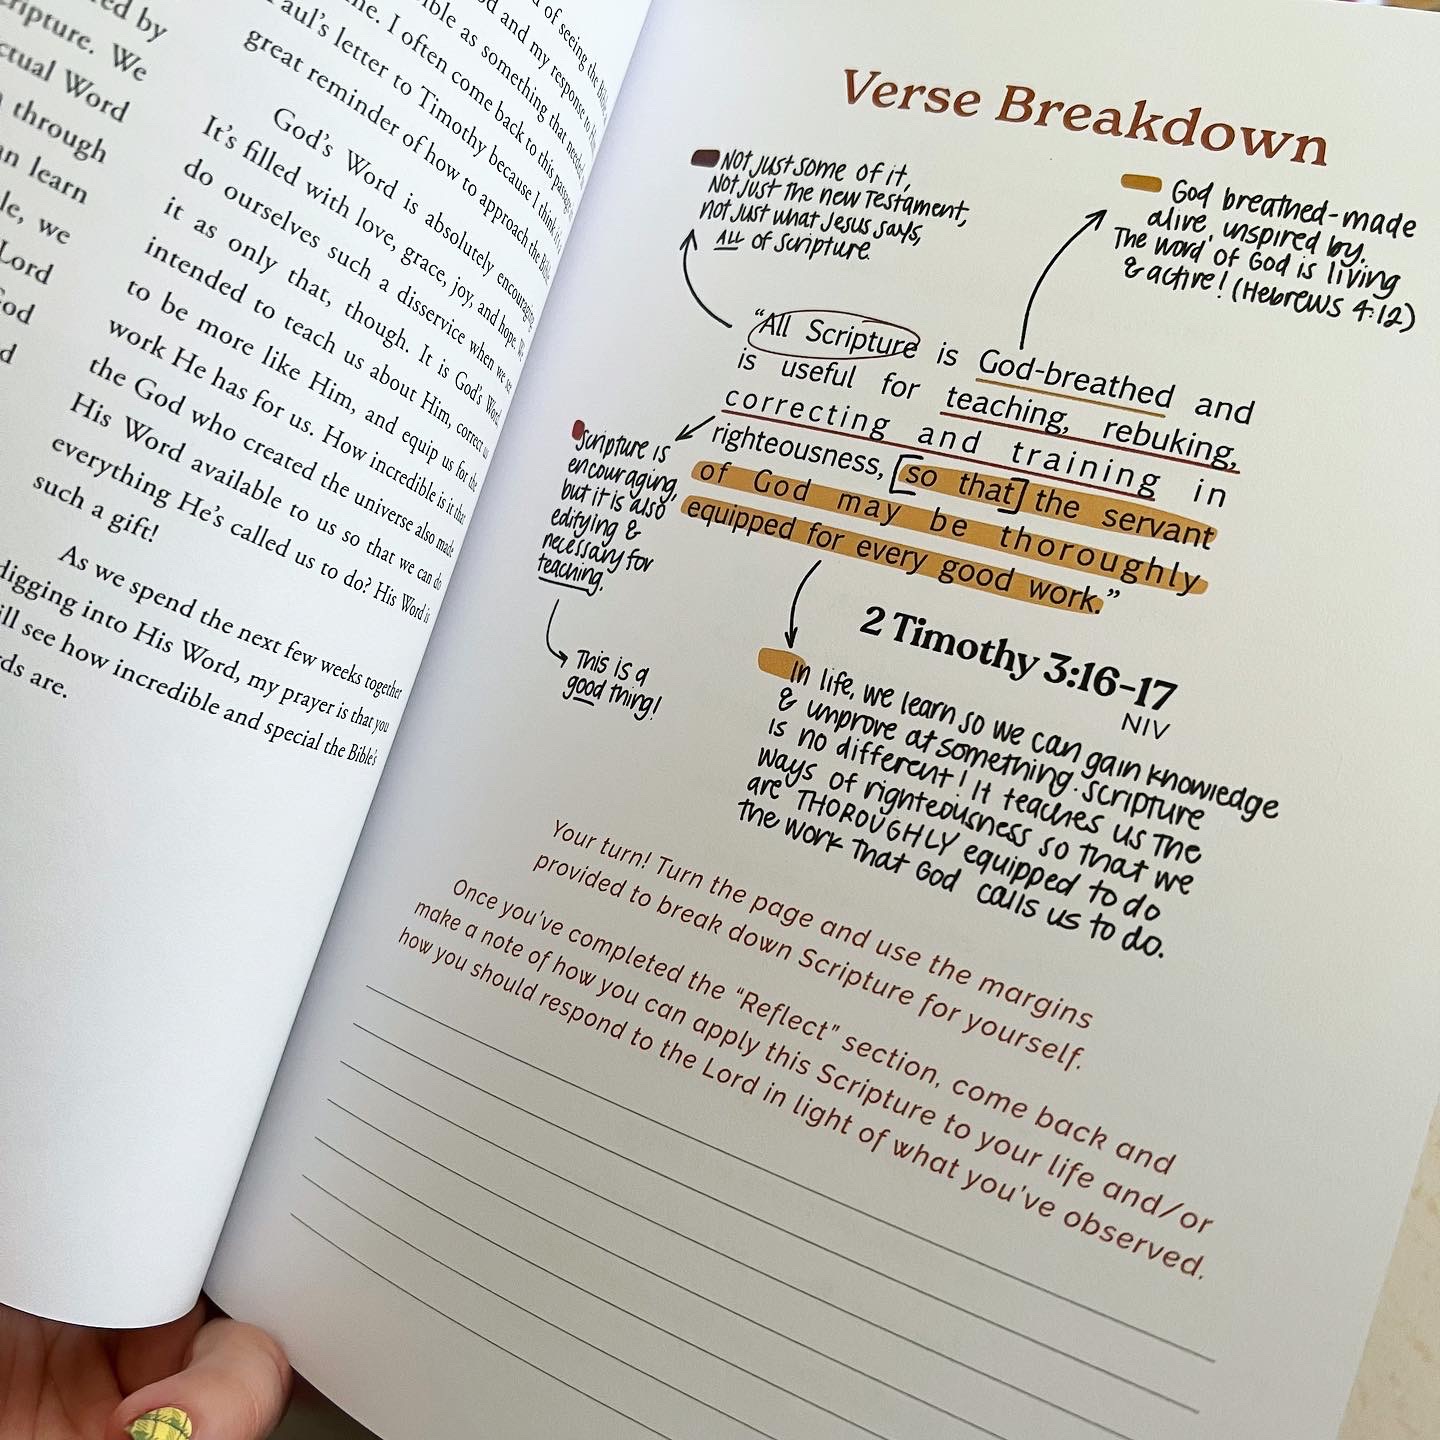 ed by
cripture. We
ctual Word
through
an learn
le, we
Lord
God
d
d of seeing the Bible
d and my response to
ible as something that needed
me. I often come back to this passage
Paul's letter to Timothy because I think it's
great reminder of how to approach the Bible.
God's Word is absolutely encouraging.
It's filled with love, grace, joy, and hope. We
do ourselves such a disservice when we see
it as only that, though. It is God's Word
intended to teach us about Him, correct us
to be more like Him, and equip us for the
work He has for us. How incredible is it that
the God who created the universe also made
His Word available to us so that we can do
everything He's called us to do? His Word is
such a gift!
As we spend the next few weeks together
digging into His Word, my prayer is that you
ill see how incredible and special the Bible's
rds are.
Verse Breakdown
Not just some of it,
Not just the new Testament,
not just what Jesus says,
ALL of scripture.
God breathed-made
alive, inspired by.
The word of God is living
& active! (Hebrews 4:12)
"All Scripture is God-breathed and
is useful for teaching, rebuking,
correcting and training in
righteousness, [so that] the servant
of God may be thoroughly
equipped for every good work."
2 Timothy 3:16-17
NIV
Scripture is
encouraging,
but it is also
edifying &
necessary for
teaching.
This is a
good thing!
In life, we learn so we can gain knowledge
& improve at something. Scripture
is no different! It teaches us the
ways of righteousness so that we
are THOROUGHLY equipped to do
the work that God calls us to do.
Your turn! Turn the page and use the margins
provided to break down Scripture for yourself.
Once you've completed the "Reflect" section, come back and
make a note of how you can apply this Scripture to your life and/or
how you should respond to the Lord in light of what you've observed.